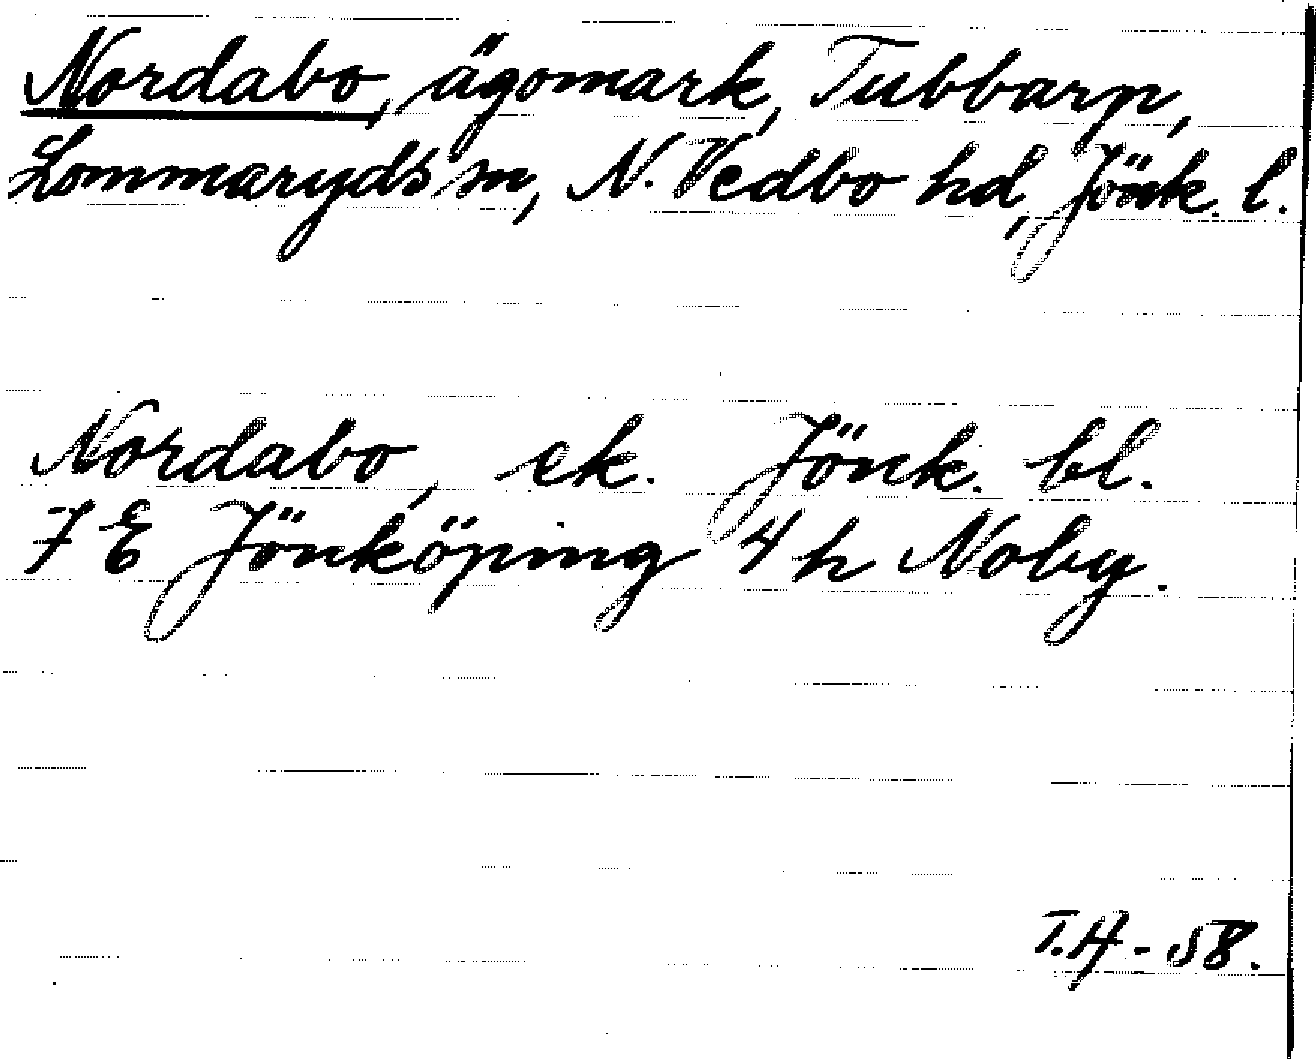 Nordabo, ägomark, Tubbarp,
Lommaryds sn, N. Vedbo hd, Jönk. l.
Nordabo, ek. Jönk. bl.
7 E Jönköping 4 h Noby.
T.H - 58.